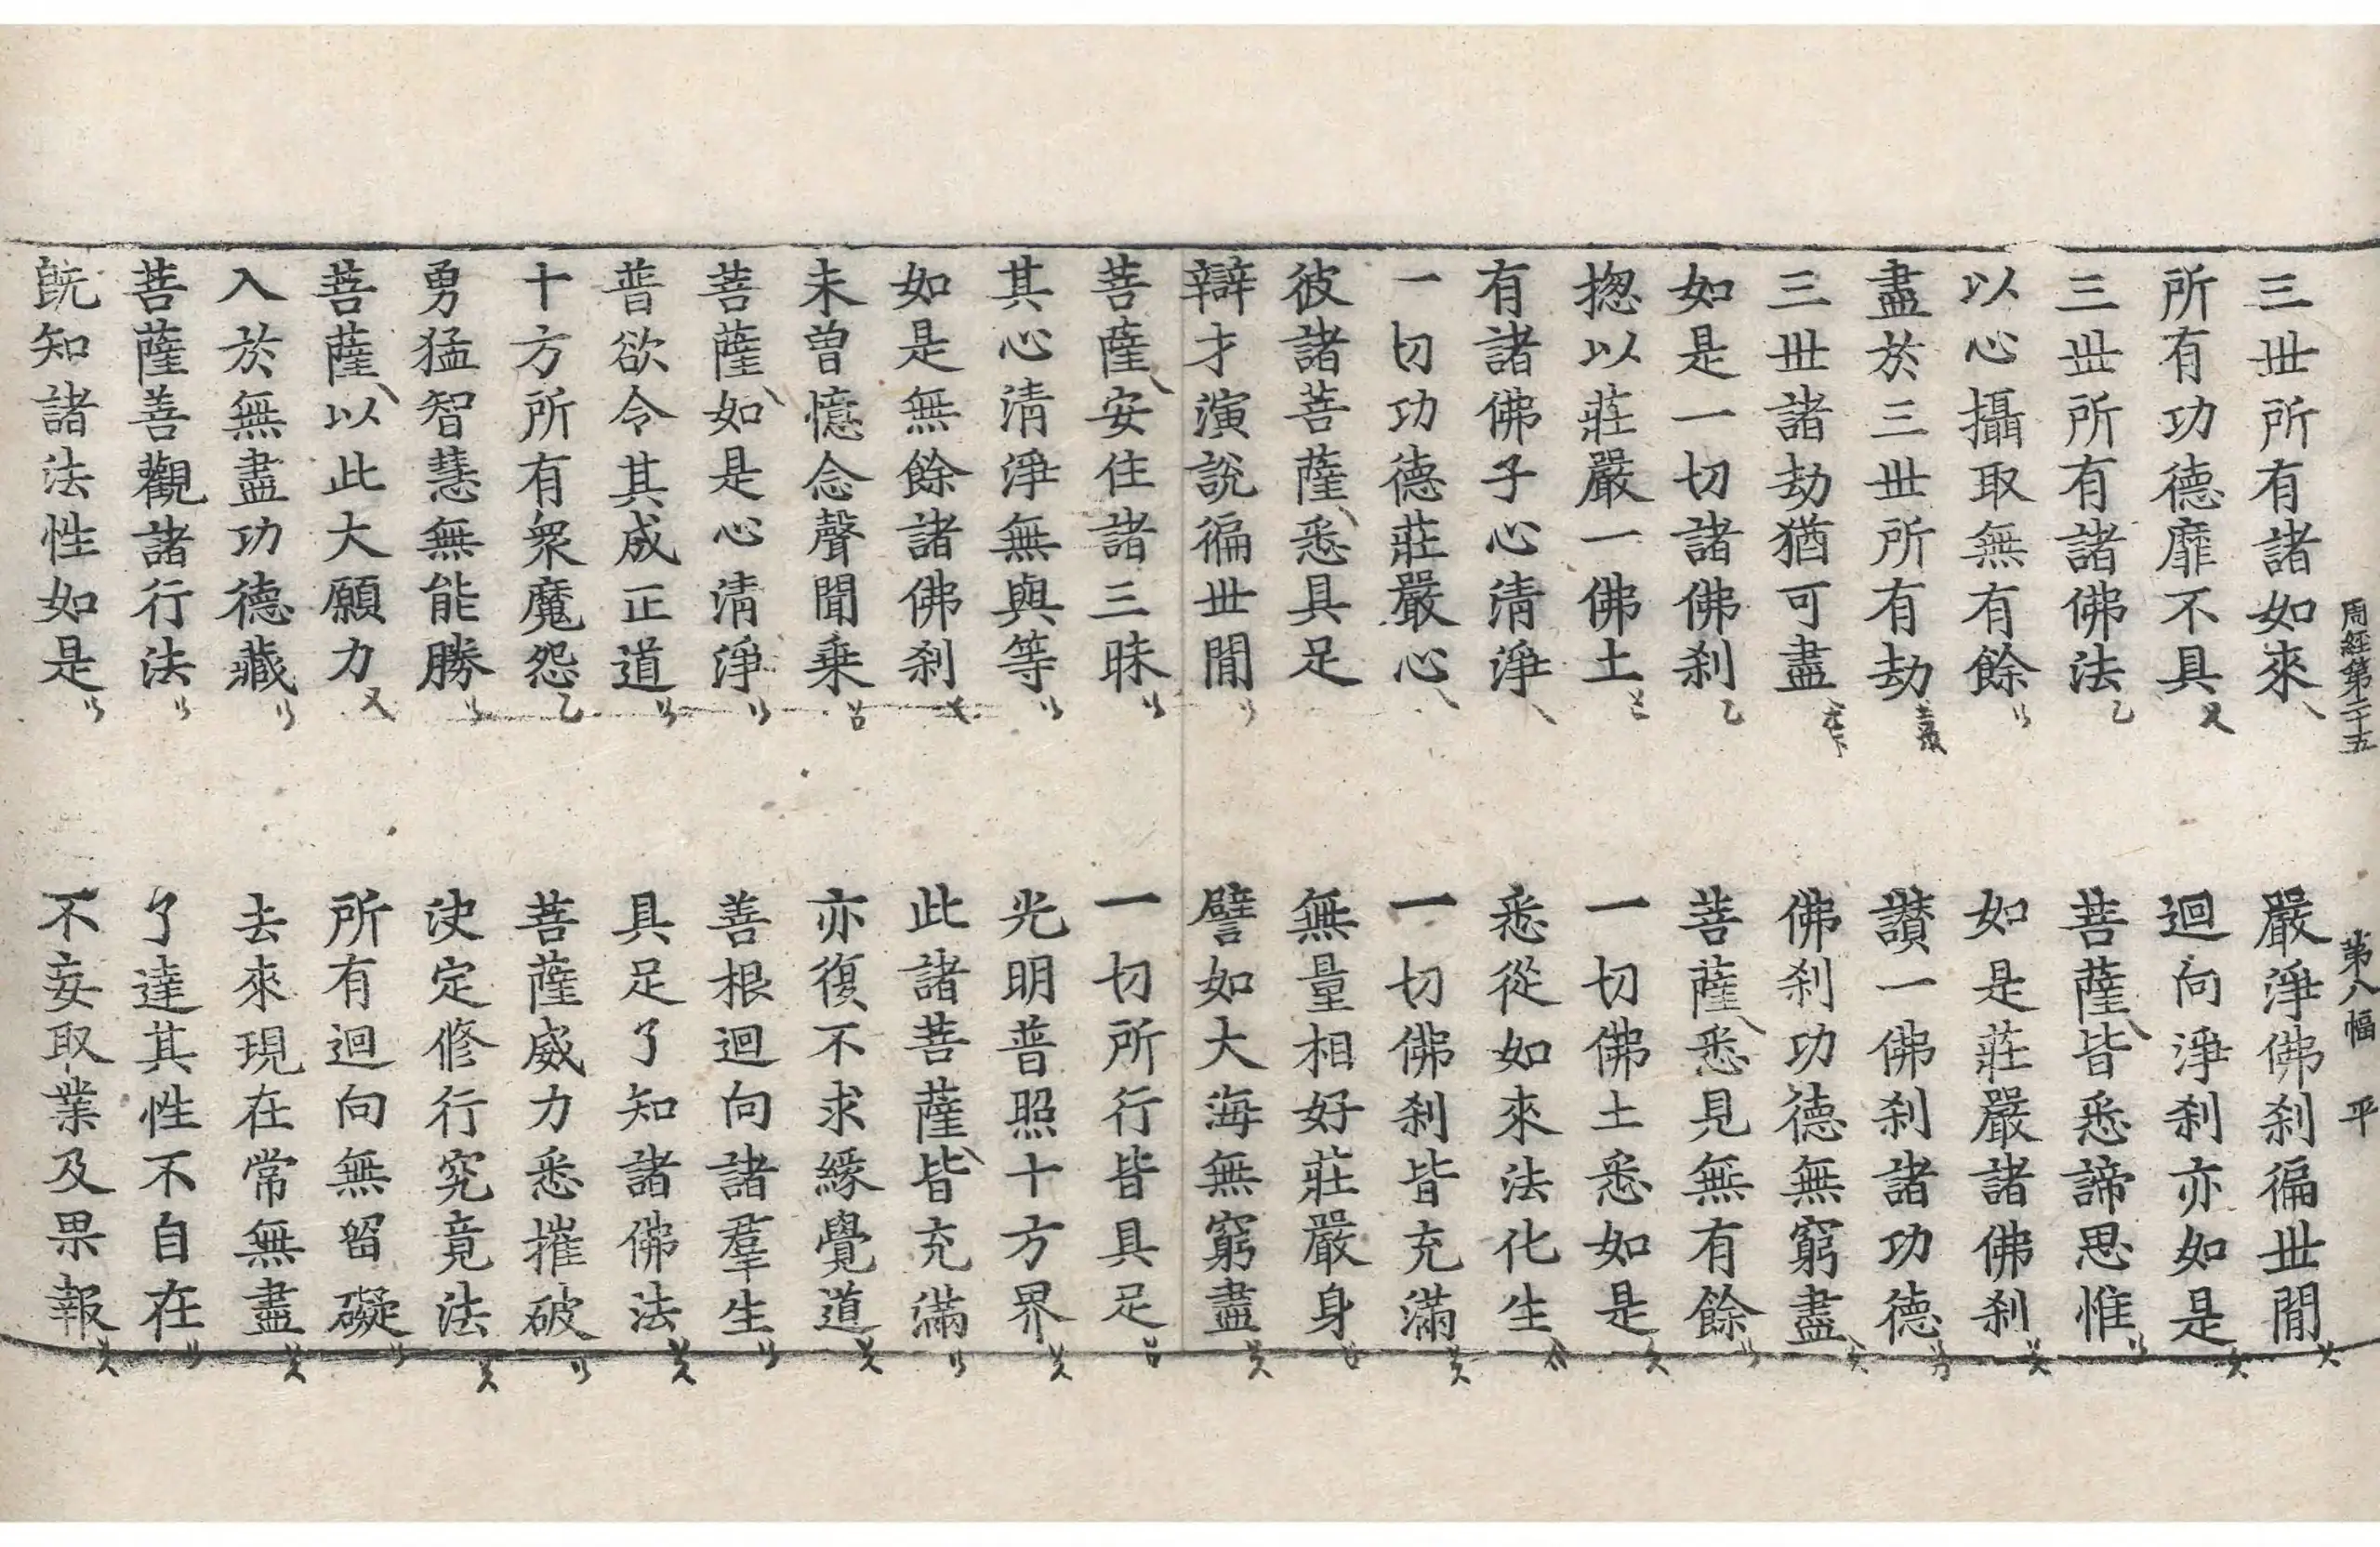 周經第二十五　第八幅　平
三世所有諸如來　嚴淨佛刹徧世間
所有功德靡不具　迴向淨刹亦如是
三世所有諸佛法　菩薩皆悉諦思惟
以心攝取無有餘　如是莊嚴諸佛刹
盡於三世所有劫　讚一佛刹諸功德
三世諸劫猶可盡　佛刹功德無窮盡
如是一切諸佛刹　菩薩悉見無有餘
揔以莊嚴一佛土　一切佛土悉如是
有諸佛子心清淨　悉從如來法化生
一切功德莊嚴心　一切佛刹皆充滿
彼諸菩薩悉具足　無量相好莊嚴身
辯才演說徧世間　譬如大海無窮盡
菩薩安住諸三昧　一切所行皆具足
其心清淨無與等　光明普照十方界
如是無餘諸佛刹　此諸菩薩皆充滿
未曾憶念聲聞乗　亦復不求緣覺道
菩薩如是心清淨　善根迴向諸羣生
普欲令其成正道　具足了知諸佛法
十方所有衆魔怨　菩薩威力悉摧破
勇猛智慧無能勝　决定修行究竟法
菩薩以此大願力　所有迴向無留礙
入於無盡功德藏　去來現在常無盡
菩薩善觀諸行法　了達其性不自在
旣知諸法性如是　不妄取業及果報